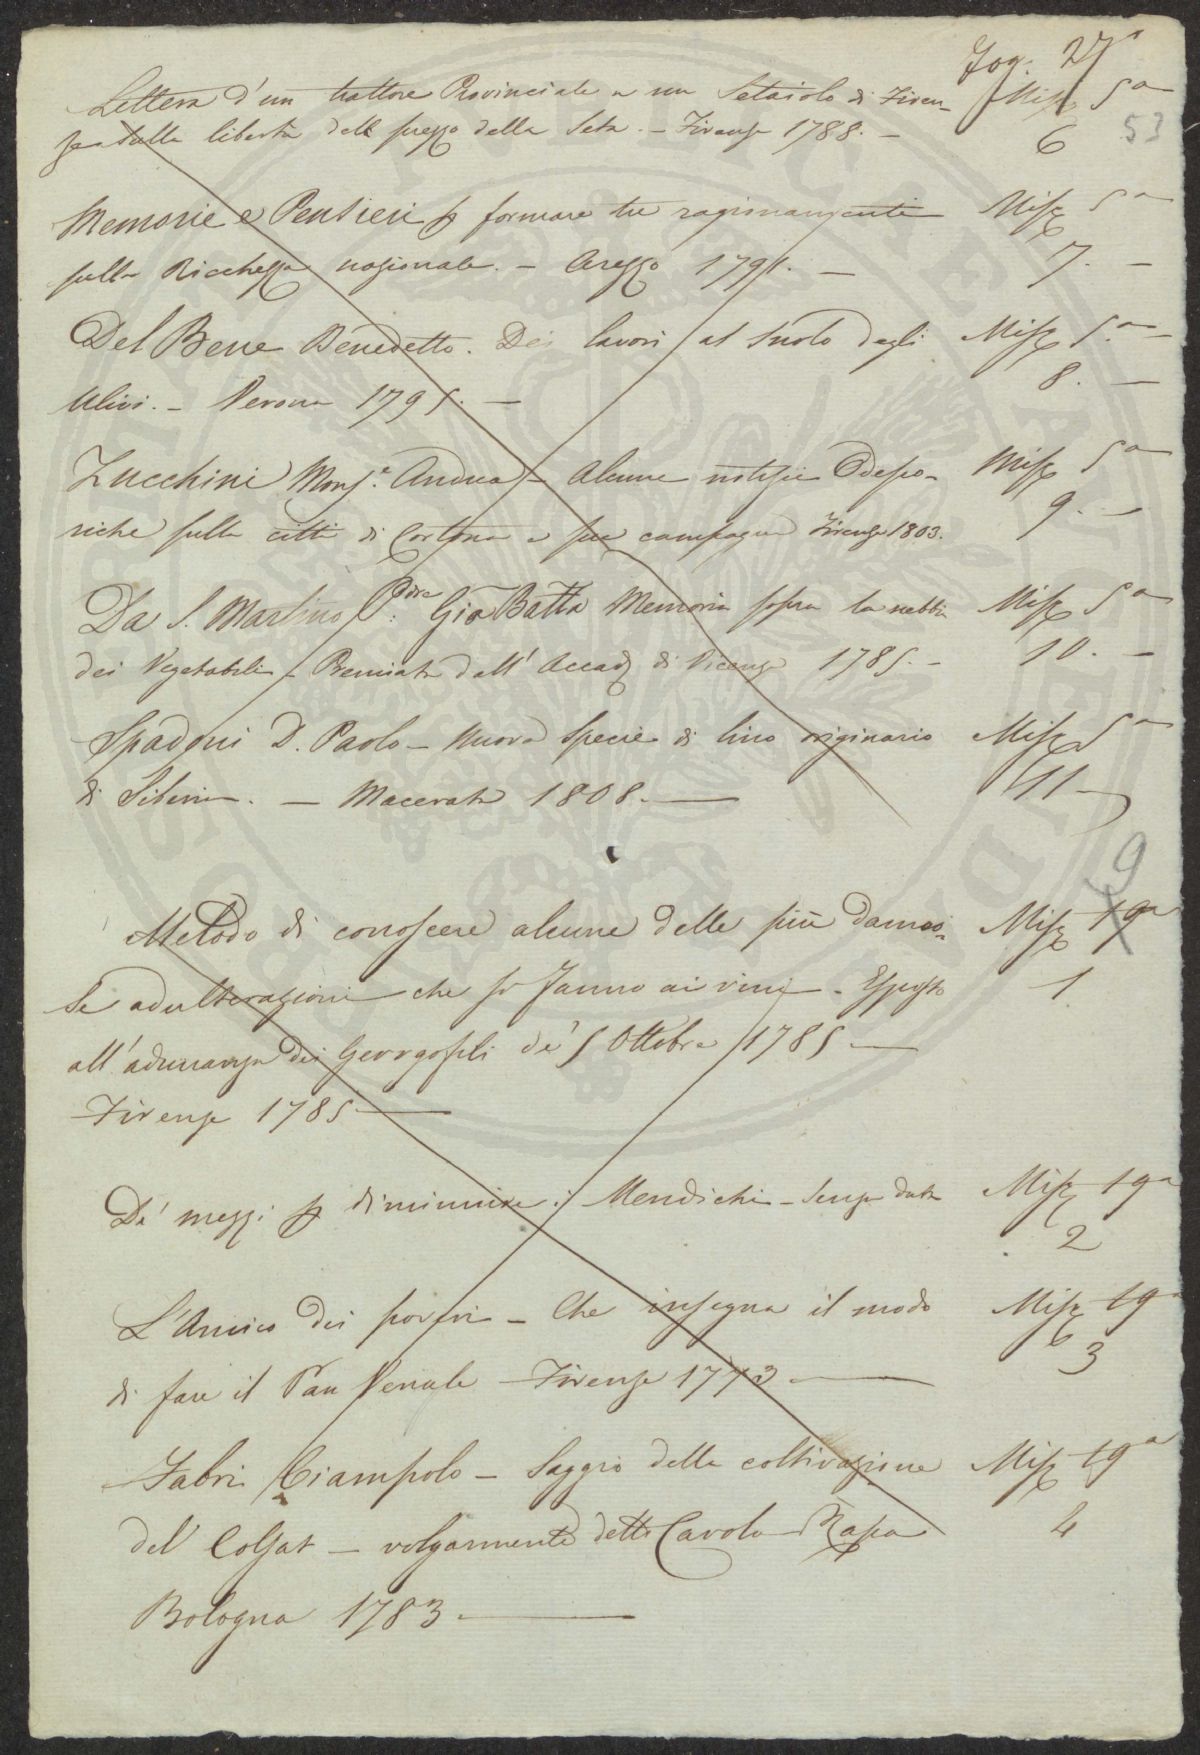 Fog. 27
53
Lettera d'un trattore Provinciale a un Setaiolo di Firen- Misc 5a
ze sulla libertà del prezzo della Seta. - Firenze 1788. - 6
Memorie e Pensieri p formare tre ragionamenti Misc 5a
sulla Ricchezza nazionale. - Arezzo 1791. - 7. -
Del Bene Benedetto. Dei lavori at suolo degli Misc 5.a -
Ulivi. - Verona 1795. - 8. -
Zucchini Monse. Andrea - Alcune notizie Odepo- Misc 5a
riche sulla città di Cortona e sue campagne Firenze 1803. 9. -
Da S. Martino Pdre: Gio Batta Memoria sopra la nebbia Misc 5a
dei Vegetabili - Premiata dall' Accad di Vicenza 1785. - 10. -
Spadoni D. Paolo - Nuova specie di lino originario Misc 5a
di Siberia. - Macerata 1808. - 11
9
Metodo di conoscere alcune delle più danno- Misc 19a
se adulterazioni che si fanno ai vini - Esposto 1
all' adunanza dei Georgofili de' 5 Ottobre 1785 -
Firenze 1785 -
De' mezzi p diminuire i Mendichi - senza data Misc 19a
2
L'Amico dei poveri - Che insegna il modo Misc 19a
di fare il Pan Venale - Firenze 1773 - 3
Fabri Ciampolo - Saggio della coltivazione Misc 19a
del Colsat - volgarmente detto Cavolo-Rapa 4
Bologna 1783 -